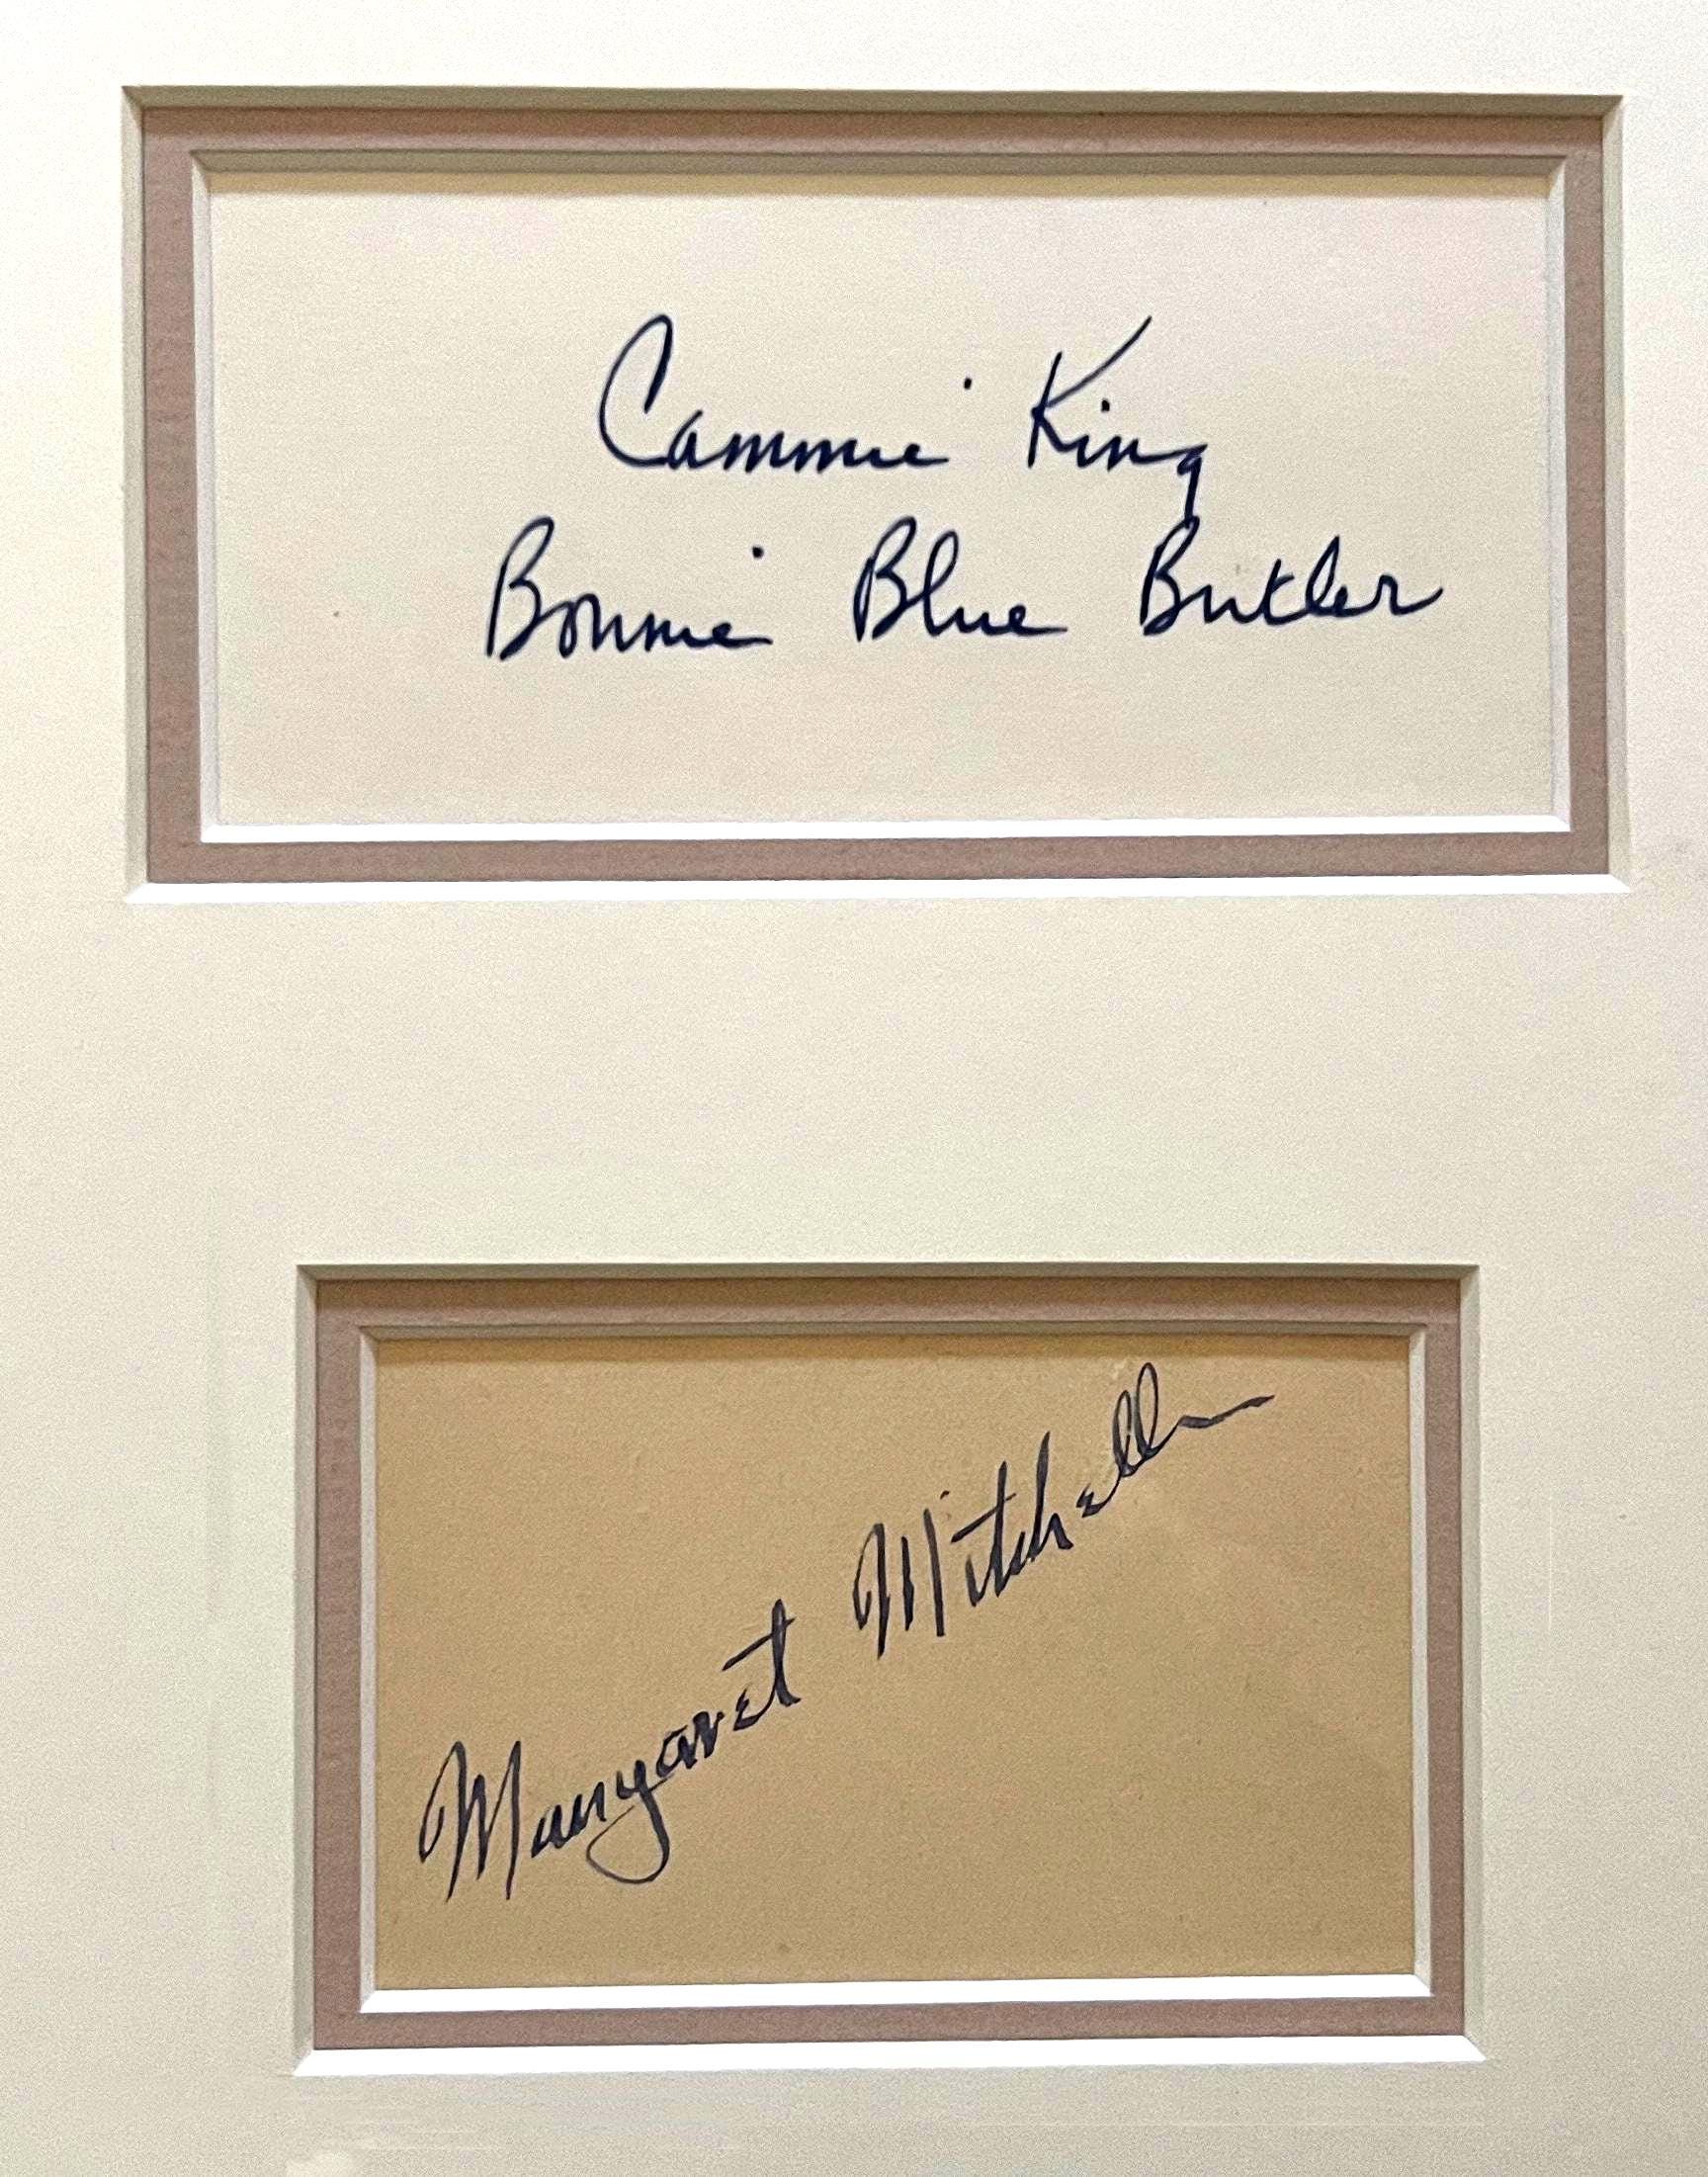 Cammie King
Bonnie Blue Butler
Margaret Mitchell